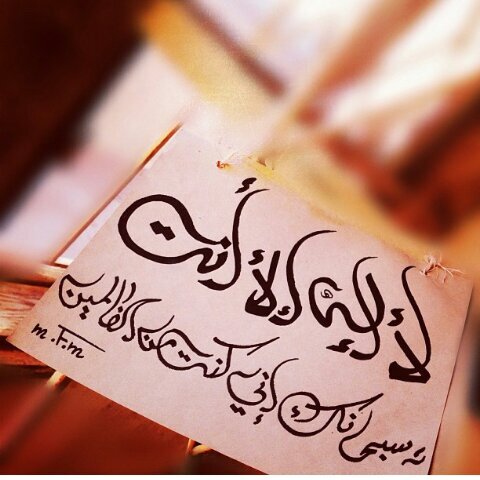 لا إله إلا أنت
سبحانك إني كنت من الظالمين
m.F.m